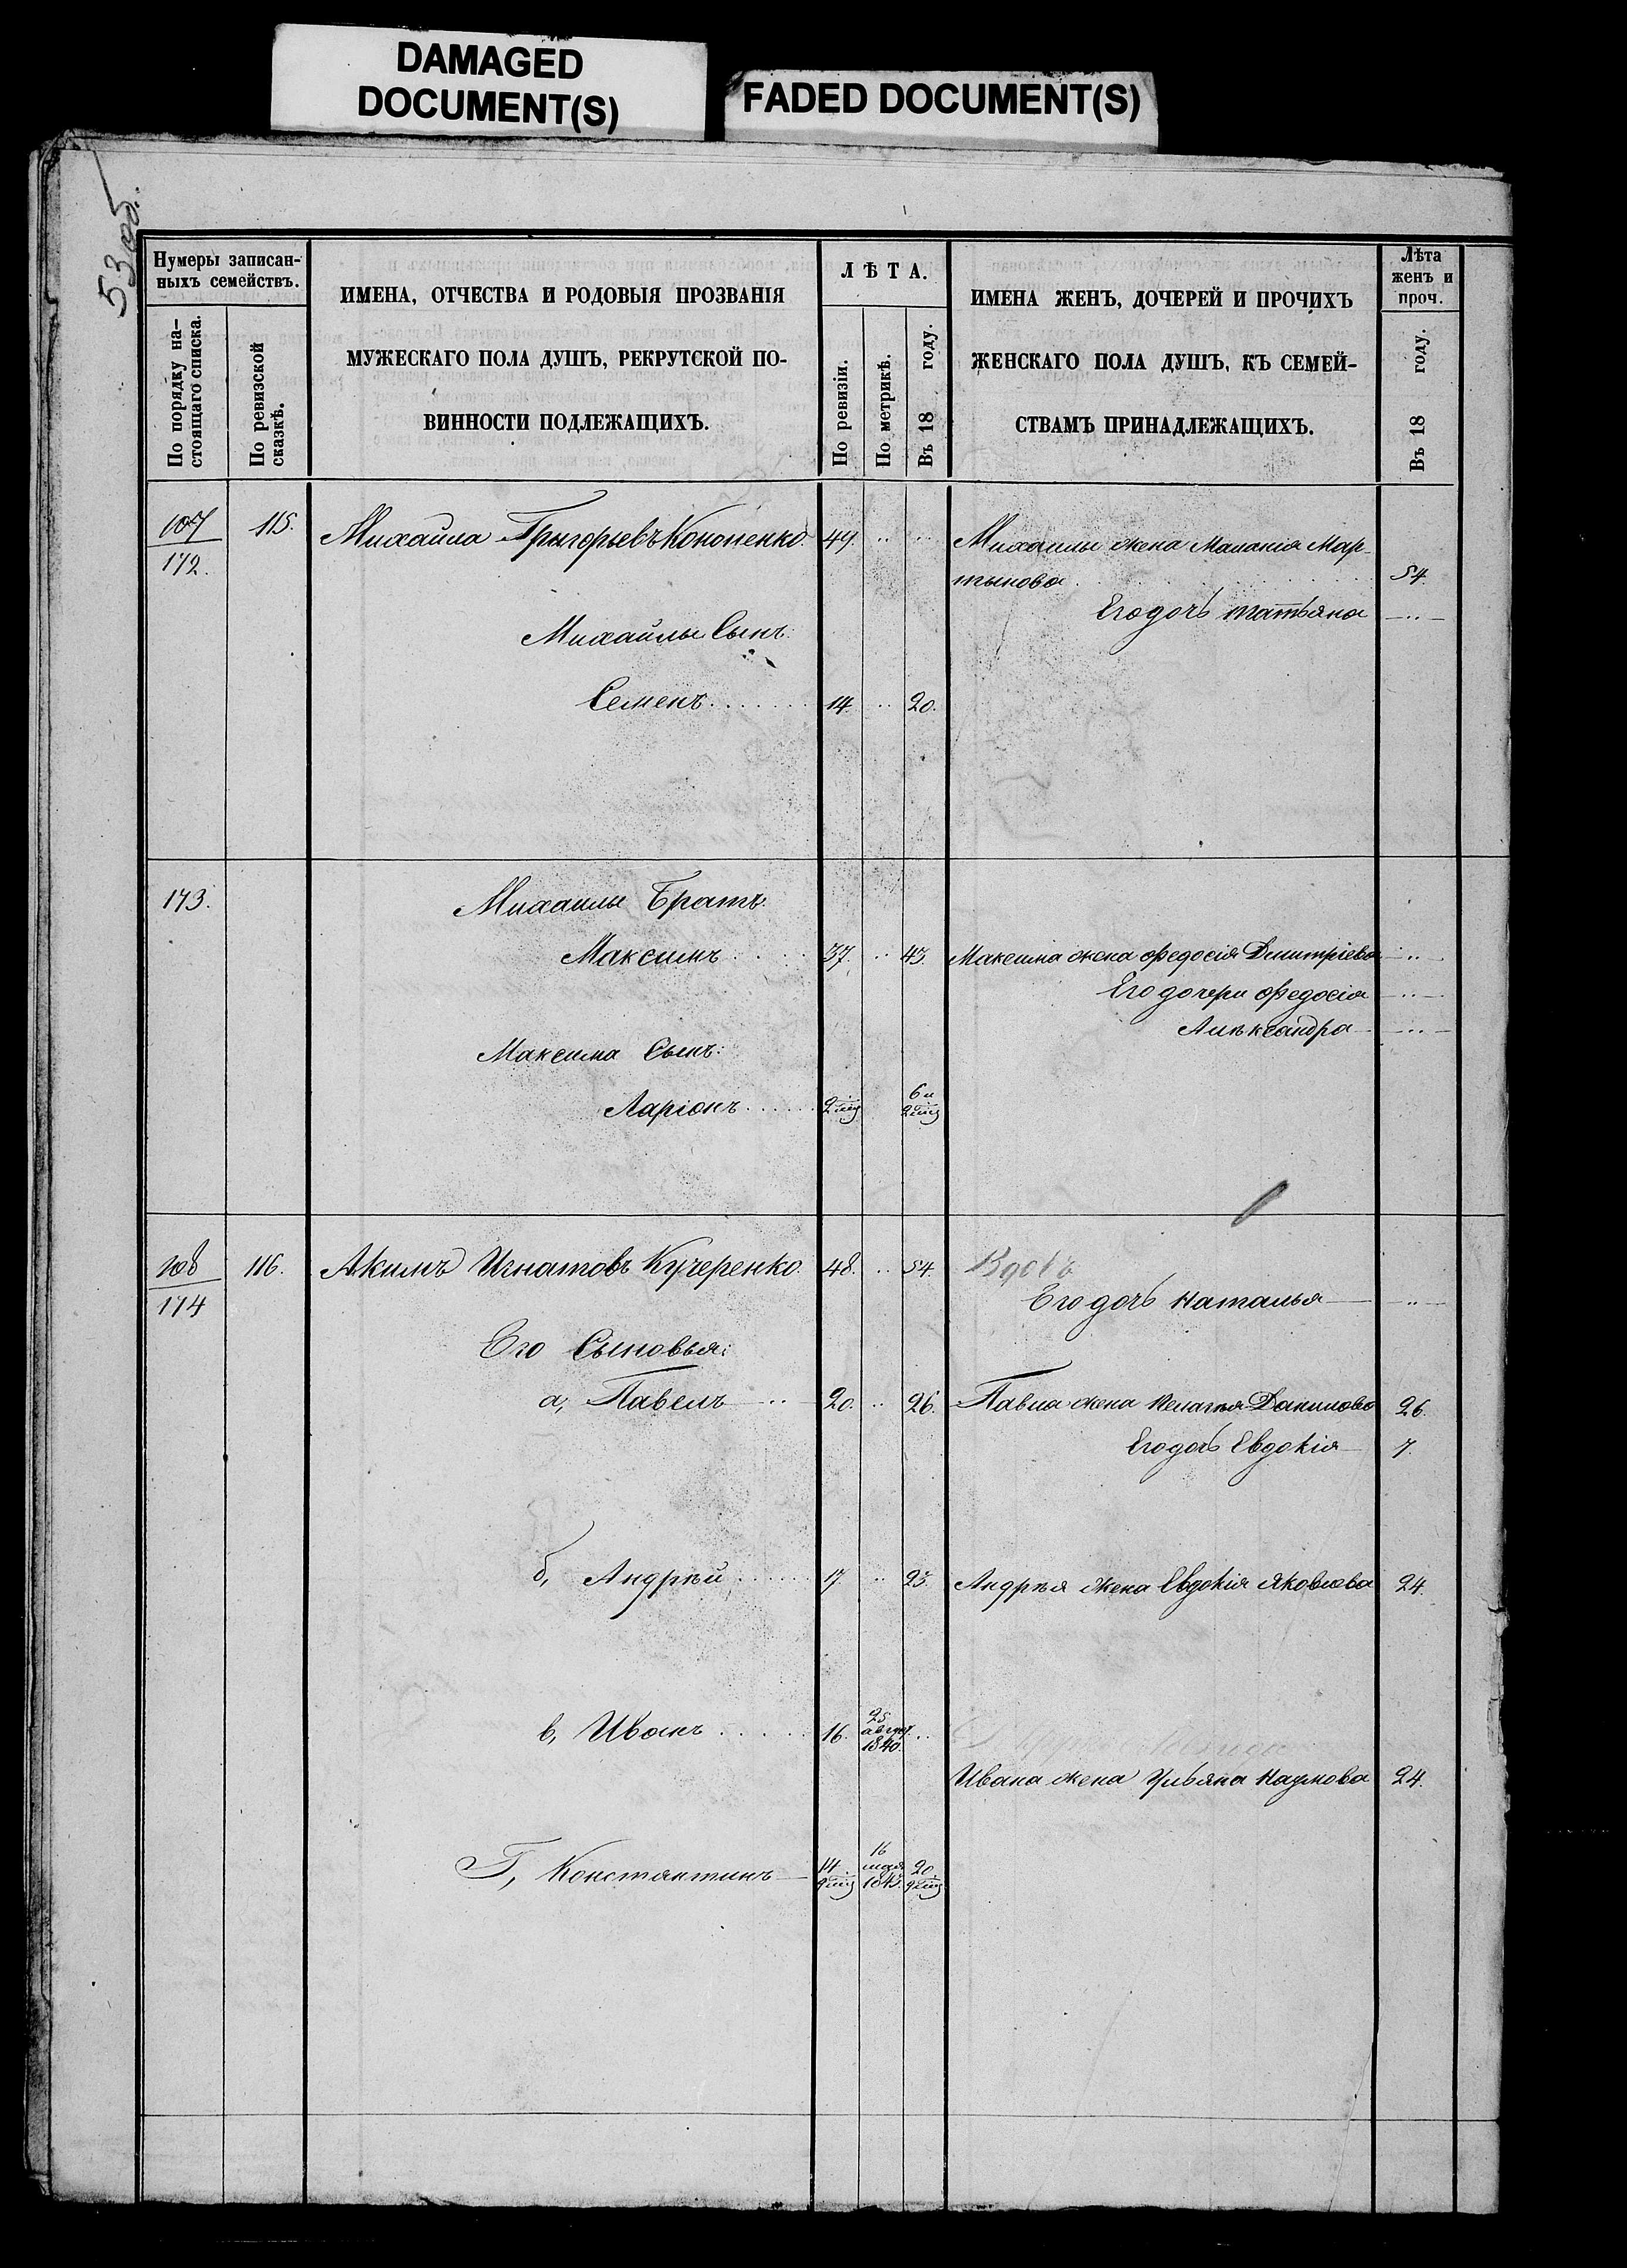 DAMAGED
DOCUMENT(S)
FADED DOCUMENT(S)
53 об.
Нумеры записан-
ныхъ семействъ.
По порядку на-
стоящаго списка.
По ревизской
сказкѣ.
ИМЕНА, ОТЧЕСТВА И РОДОВЫЯ ПРОЗВАНІЯ
МУЖЕСКАГО ПОЛА ДУШЪ, РЕКРУТСКОЙ ПО-
ВИННОСТИ ПОДЛЕЖАЩИХЪ.
ЛѢТА.
По ревизіи.
По метрикѣ.
Въ 18 году.
ИМЕНА ЖЕНЪ, ДОЧЕРЕЙ И ПРОЧИХЪ
ЖЕНСКАГО ПОЛА ДУШЪ, КЪ СЕМЕЙ-
СТВАМЪ ПРИНАДЛЕЖАЩИХЪ.
Лѣта
женъ и
проч.
Въ 18 году.
107 115. Михайла Григорьевъ Кононенко. 49. Михаилы жена Маланія Мар-
172. тынова 54.
Его дочь татьяна
Михайлы Сынъ:
Семенъ 14. 20.
173. Михаилы Братъ:
Максимъ 37. 43. Максима жена Федосія Дмитріева
Его дочери Федосія
Александра
Максима Сынъ:
6 и
Ларіонъ 2 мц 2 мц
108 116. Акимъ Игнатовъ Кучеренко. 48. 54. Вдовъ
174 Его дочь Наталья
Его Сыновья:
а, Павелъ 20. 26. Павла жена Пелагѣя Данилова 26.
Его дочь Евдокія 7.
б, Андрѣй 17. 23. Андрѣя жена Евдокія Яковлева 24.
в, Иванъ 16. 25 август. 1840.
Ивана жена Ульяна Наумова 24.
Г, Константинъ 14 9 мц 16 мая 1843. 20 9 мц